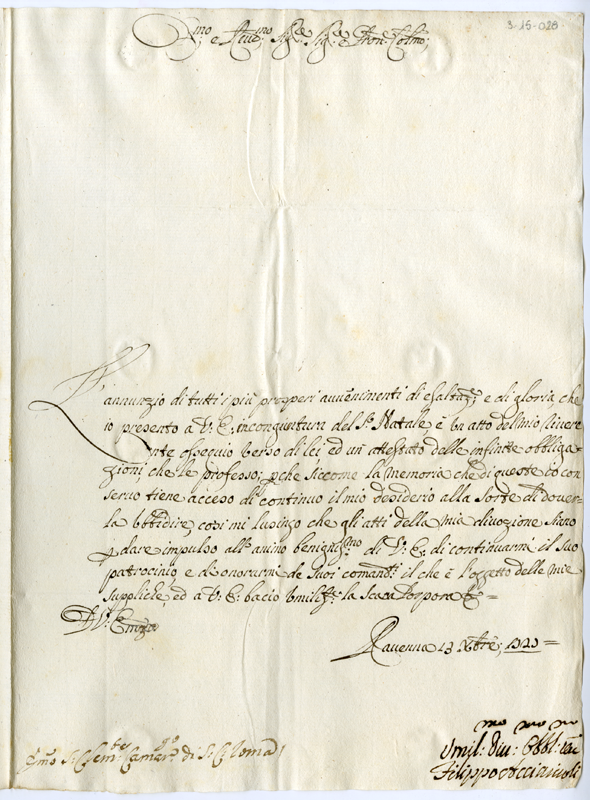 3-15-028
Emo, e Reudmo Sigre, Sigre, e Pron Colmo;
L'
annunzio di tutti i più prosperi auuenimenti di esaltaz:, e di gloria che
io presento a V: E: in congiuntura del Sto Natale, è un atto del mio riuere
nte ossequio verso di lei, ed un' attestato delle infinite obbliga=
zioni che le professo; pche siccome la memoria, che di queste io con
seruo tiene acceso di continuo il mio desiderio alla sorte di pouer
la obbidire, così mi lusingo che gli atti della mia diuozione siano
p dare impulso all' animo benignmo di V: E: di continuarmi il suo
patrocinio, e di onorarmi de suoi comandi: il che è l'oggetto delle mie
suppliche, ed a V: E: bacio vmilte: la Sacra Porpora
D V: Emza
Rauenna 13 Xbre; 1721=
Emo S: C: Clemte Camargo di S: C: Roma
Vmil: Diu: Obbl:
Filippo